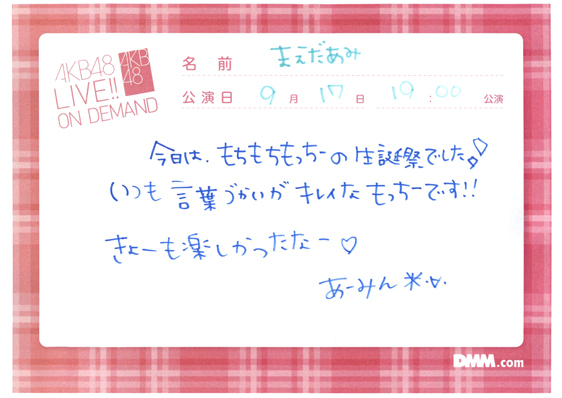 AKB48
LIVE!!
ON DEMAND
AKB
48
名 前 まえだあみ
公演日 9月 17日 19:00 公演
今日は、もちもちもっちーの生誕祭でした
いつも言葉づかいがキレイなもっちーです!!
きょーも楽しかったなー♡
あーみん
DMM.com